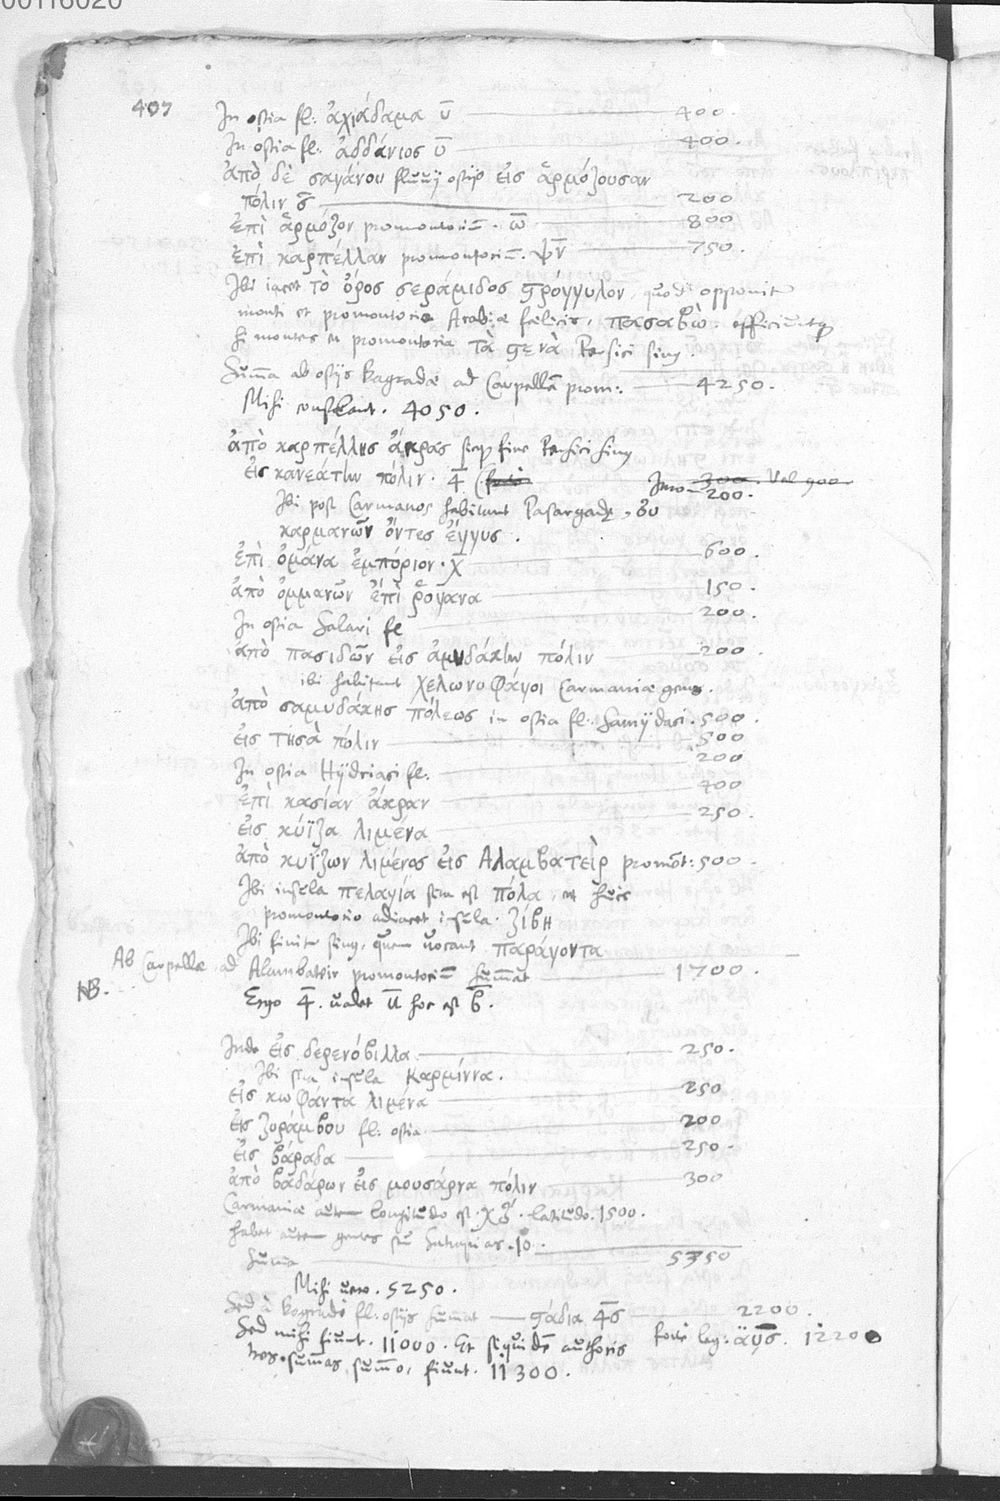 00116020
407
In ostia fl. ἀχιάδαμα ῡ 400.
In ostia fl. ἀδδάνιος ῡ 400.
ἀπὸ δὲ σαγάνου fluuij ostijs εἰς ἁρμόζουσαν
πόλιν σ̄ 200
ἐπὶ ἁρμόζον promontoriū. ω̄ 800
ἐπὶ καρπέλλαν promontoriū. ψν̄ 750.
Ibi iacet τὸ ὄρος σεράμιδος ϛρόγγυλον, quod opponit
monti et promontorio Arabiæ felicis, πασαβὼ. efficiuntq
hi montes et promontoria τὰ ϛενὰ Persici sinus.
Summa ab ostijs Bagradæ ad Carpellā prom: 4250.
Mihi constant. 4050.
ἀπὸ καρπέλλης ἄκρας sinus Persici sinus
εἰς κανεάτην πόλιν. ϥ̄ Imo 300. Vel 900
200.
Ibi post Carmanos habitant Pasargadę, οὐ
καρμανῶν ὄντες ἐγγυς.
ἐπὶ ὄμανα ἐμπόριον. χ̄ 600.
ἀπὸ ὀμμανῶν ἐπὶ ῥόγανα 150.
In ostia Salari fl 200.
ἀπὸ πασιδῶν εἰς ἀμυδάκην πόλιν 200.
ibi habitant χελωνοφάγοι Carmaniæ gens.
ἀπὸ σαμυδάκης πόλεως in ostia fl. Samÿdasi. 500.
εἰς τησὰ πόλιν 500
In ostia Hÿdriasi fl. 200
ἐπὶ κασίαν ἄκραν 400
εἰς κύϊζα λιμένα 250.
ἀπὸ κυΐζων λιμένος εἰς Αλαμβατεὶρ promōt: 500.
Ibi insula πελαγία sita est πόλα, et huic
promontorio adiacet insula. ζίβη
Ibi finitur sinus, quem uocant παράγοντα
Ab Carpella ad Alambateir promontoriū summat 1700.
NB.
Ergo ϥ̄. ualet ῡ hoc est β̄.
Inde εἰς δερενόβιλλα 250.
Ibi sita insula Καρμίννα.
εἰς κωφάντα λιμένα 250
εἰς ζοράμβου fl. ostia 200
εἰς βάραδα 250.
ἀπὸ βαδάρων εἰς μουσάρνα πόλιν 300
Carmaniæ autem longitudo est. latitudo. 1500.
habet autem gentes seu Satrapias. 10.
Summa 5350
Mihi uero. 5250.
Sed à Bagradę fl. ostijs summat ϛάδια 2200.
Sed mihi fiunt. 11000. Et siquidē authoris forte leg: 12200
tres summas summo, fiunt. 11300.